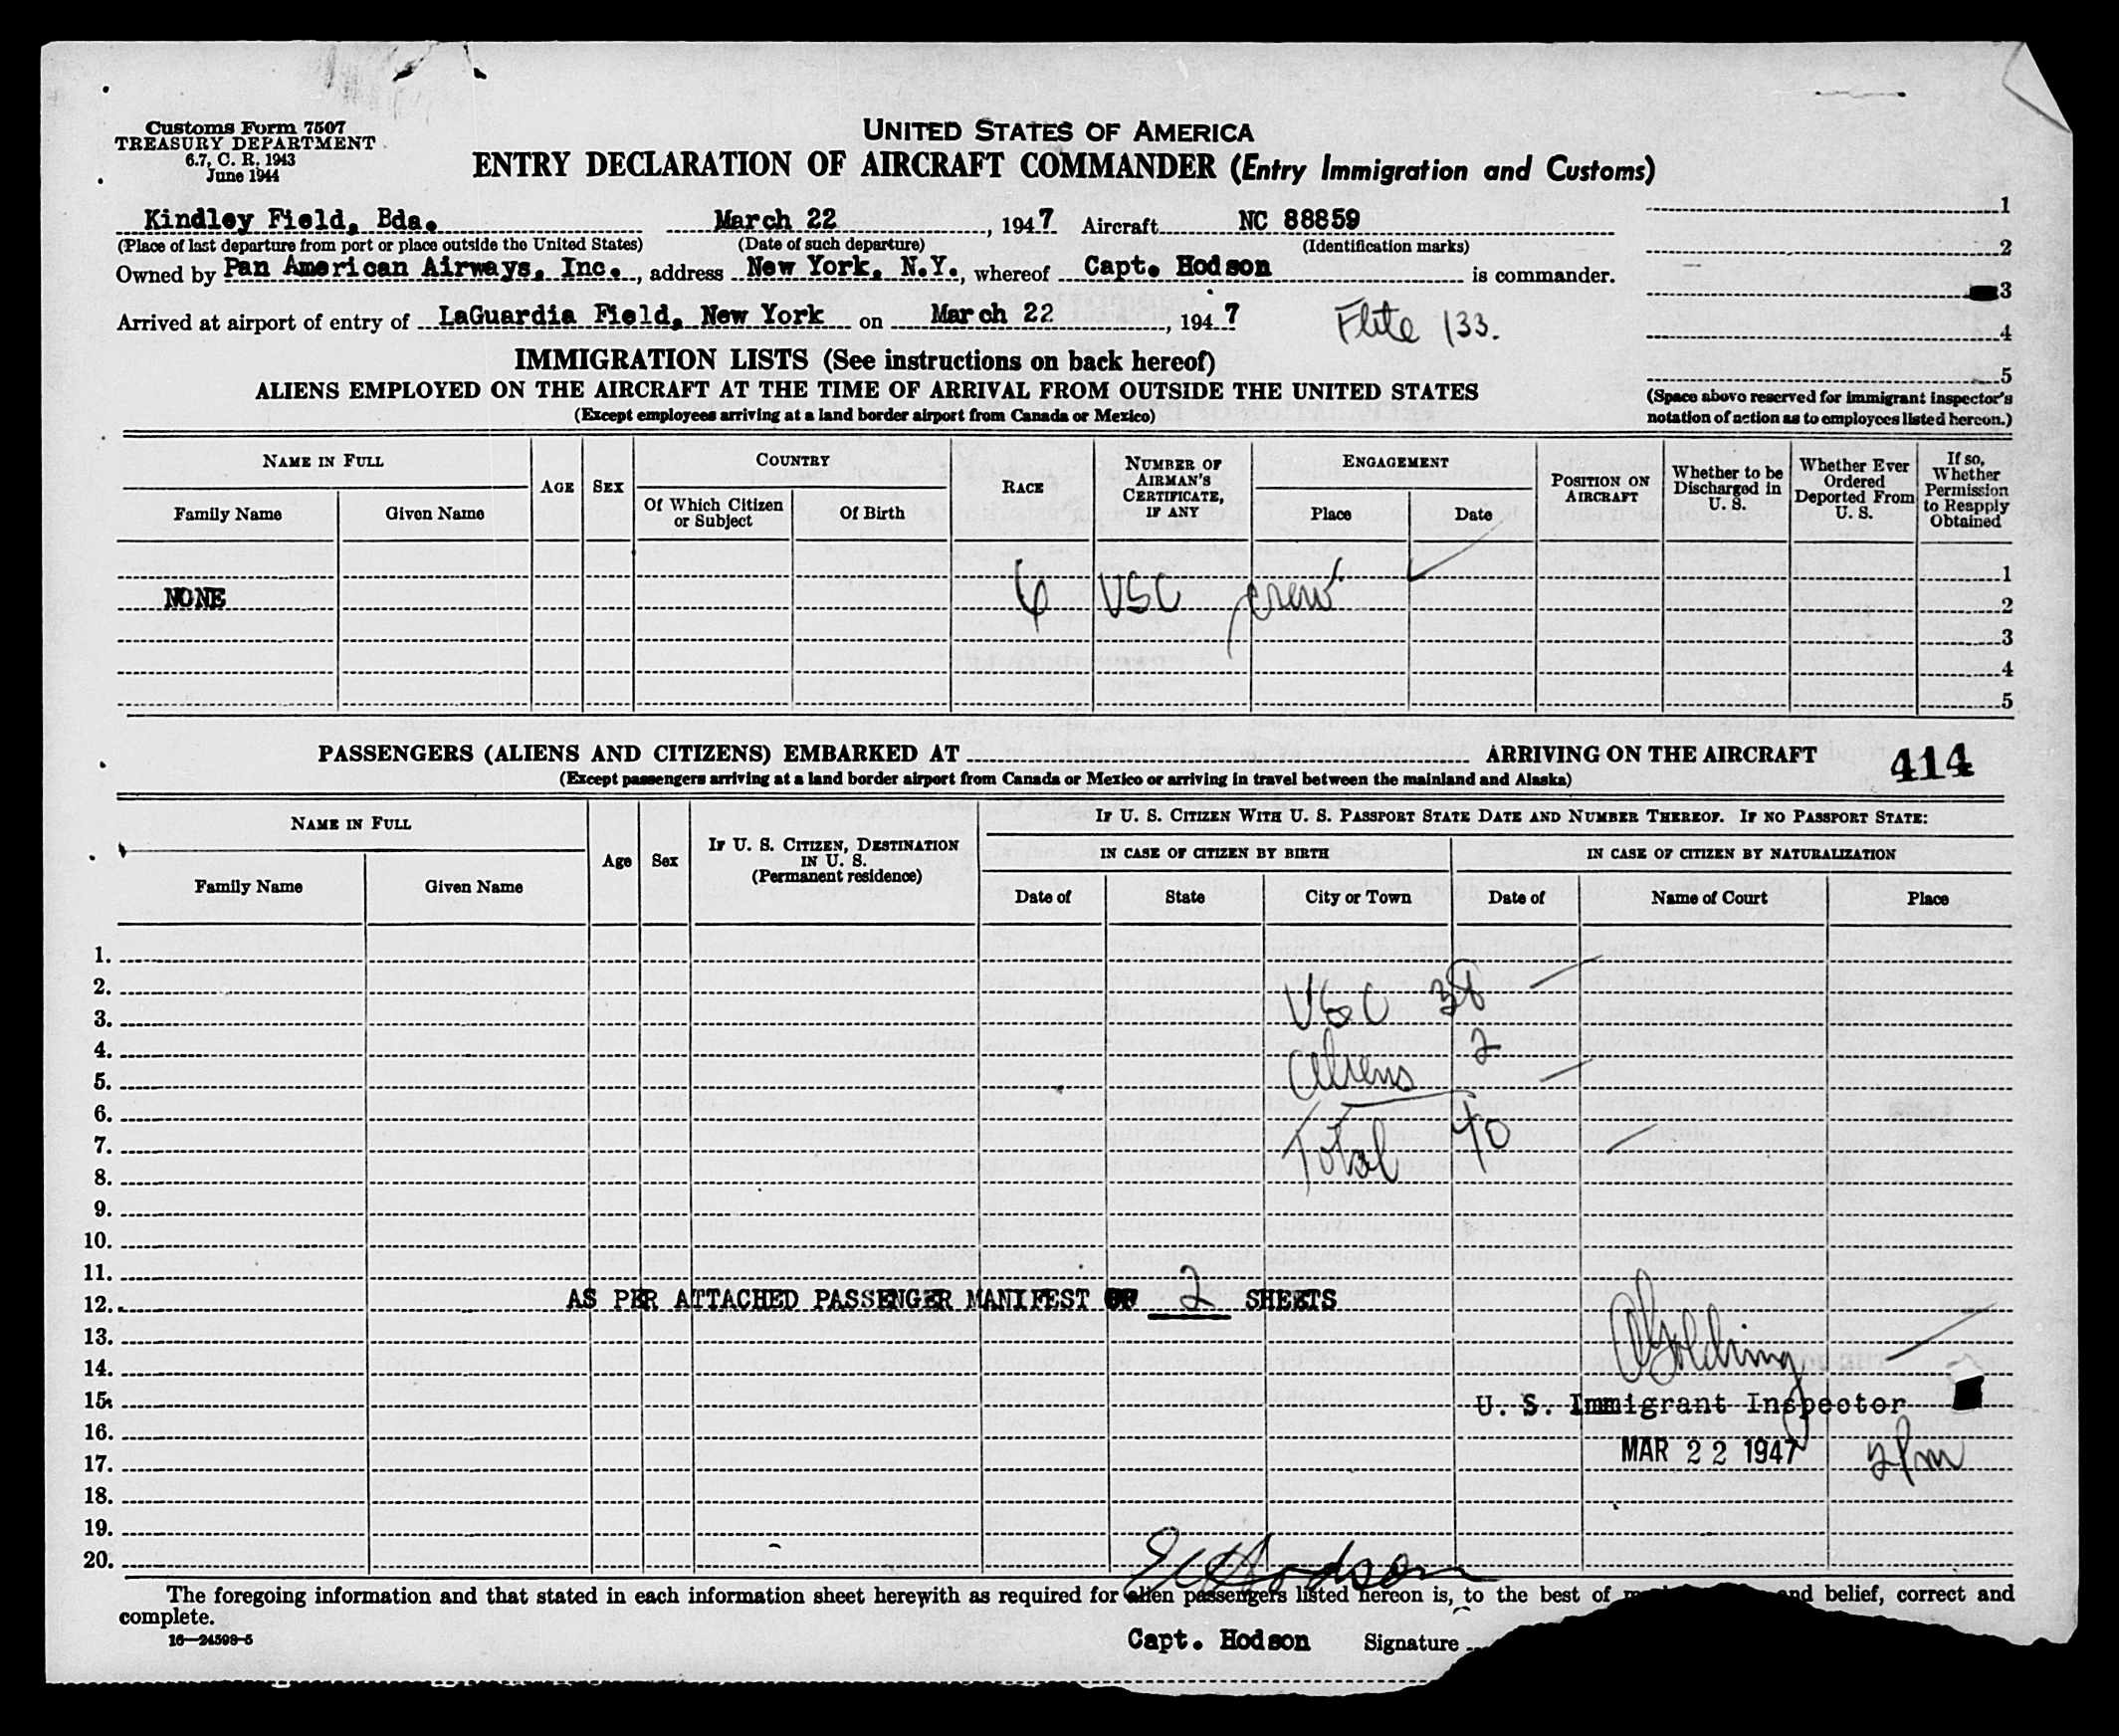 Customs Form 7507
TREASURY DEPARTMENT
6.7, C. R. 1943
June 1944
UNITED STATES OF AMERICA
ENTRY DECLARATION OF AIRCRAFT COMMANDER (Entry Immigration and Customs)
Kindley Field, Bda. March 22, 1947 Aircraft NC 88859
(Place of last departure from port or place outside the United States) (Date of such departure) (Identification marks)
Owned by Pan American Airways, Inc., address New York, N.Y., whereof Capt. Hodson is commander.
Arrived at airport of entry of LaGuardia Field, New York on March 22, 1947 Flite 133.
1
2
3
4
5
(Space above reserved for immigrant inspector's
notation of action as to employees listed hereon.)
IMMIGRATION LISTS (See instructions on back hereof)
ALIENS EMPLOYED ON THE AIRCRAFT AT THE TIME OF ARRIVAL FROM OUTSIDE THE UNITED STATES
(Except employees arriving at a land border airport from Canada or Mexico)
NAME IN FULL
Family Name Given Name
AGE
SEX
COUNTRY
Of Which Citizen
or Subject
Of Birth
RACE
NUMBER OF
AIRMAN'S
CERTIFICATE,
IF ANY
ENGAGEMENT
Place Date
POSITION ON
AIRCRAFT
Whether to be
Discharged in
U. S.
Whether Ever
Ordered
Deported From
U. S.
If so,
Whether
Permission
to Reapply
Obtained
1
NONE 6 USC crew 2
3
4
5
PASSENGERS (ALIENS AND CITIZENS) EMBARKED AT ARRIVING ON THE AIRCRAFT 414
(Except passengers arriving at a land border airport from Canada or Mexico or arriving in travel between the mainland and Alaska)
NAME IN FULL
Family Name Given Name
Age
Sex
IF U. S. CITIZEN, DESTINATION
IN U. S.
(Permanent residence)
IF U. S. CITIZEN WITH U. S. PASSPORT STATE DATE AND NUMBER THEREOF. IF NO PASSPORT STATE:
IN CASE OF CITIZEN BY BIRTH
IN CASE OF CITIZEN BY NATURALIZATION
Date of State City or Town Date of Name of Court Place
1.
2.
3. USC 38
4.
5. Aliens 2
6.
7. Total 40
8.
9.
10.
11.
12. AS PER ATTACHED PASSENGER MANIFEST OF 2 SHEETS
13.
14. Golding
15. U. S. Immigrant Inspector
16.
17. MAR 22 1947 2 pm
18.
19.
20.
E Hodson
The foregoing information and that stated in each information sheet herewith as required for alien passengers listed hereon is, to the best of and belief, correct and
complete.
16—24598-5
Capt. Hodson Signature